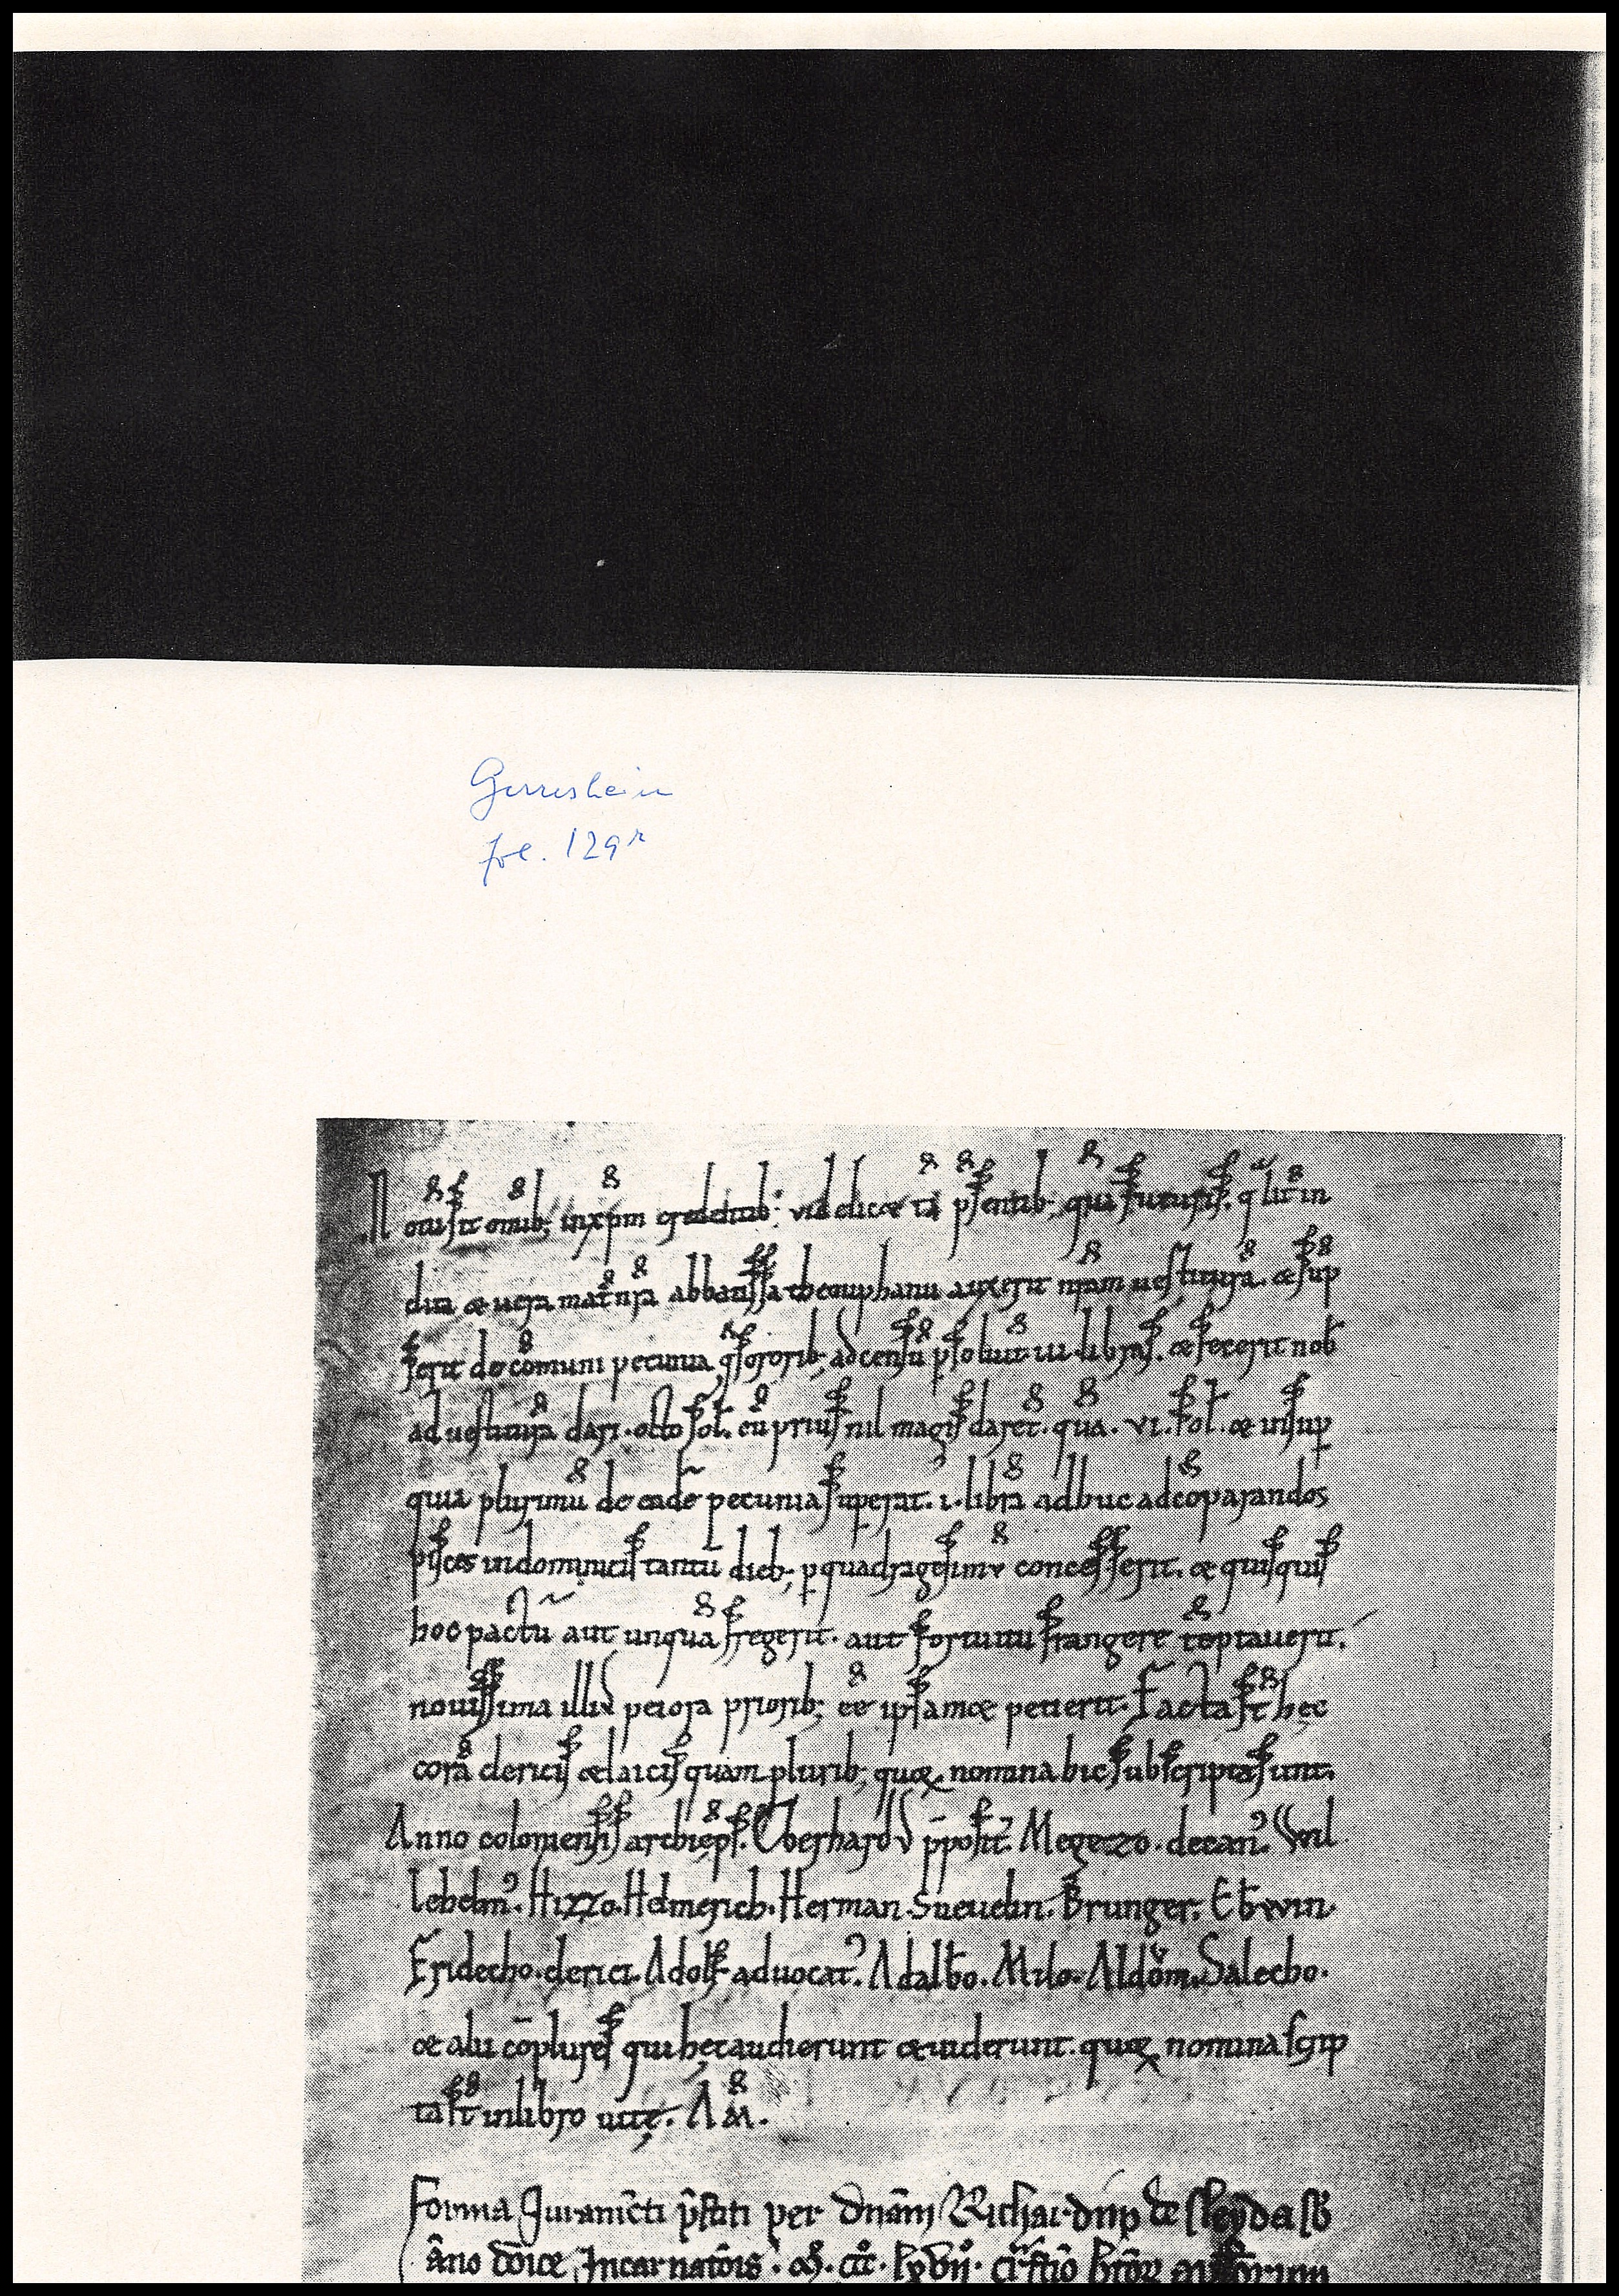 Gerresheim
fol. 129r
Notū sit omīb; in xpm credentib; videlicet tā psentib; quā futuris. qliť in
dua & uera mať nrā abbatissa theouphanu auxerit nram uestiturā. & sup
serit de cōmuni pecunia q sororib; ad censū psoluit III libras. & fecerit nob
ad uestiturā dari. octo sol. cū prius nil magis daret. quā. VI. sol. & insup
quia plurimū de eadē pecunia superat. I. librā adhuc ad cōparandos
pisces in dominicis tantū dieb; p quadragesimā concesserit. & quisquis
hoc pactū aut unquā fregerit. aut fortuitu frangere teptauerit.
nouissima illi peiora priorib; eē ipsamet petierit. Facta st hęc
corā clericis & laicis quam plurib; quoꝝ nomina hic subscripta sunt.
Anno coloniensis archieps. Eberhard pposit. Megezzo. decan. Wil
lehelm. Hizzo. Helmerich. Herman. Sueuelin. Brunger. Ebwin.
Fridecho. clerici. Adolf aduocat. Adalbo. Milo. Aldom. Salecho.
& alii cōplures qui hęc audierunt & uiderunt. quoꝝ nomina scrip
ta st in libro uitę. AM.
Forma Juramēti pstiti per dnām Richardm de sleyda sb
āno dnice Incarnatōis